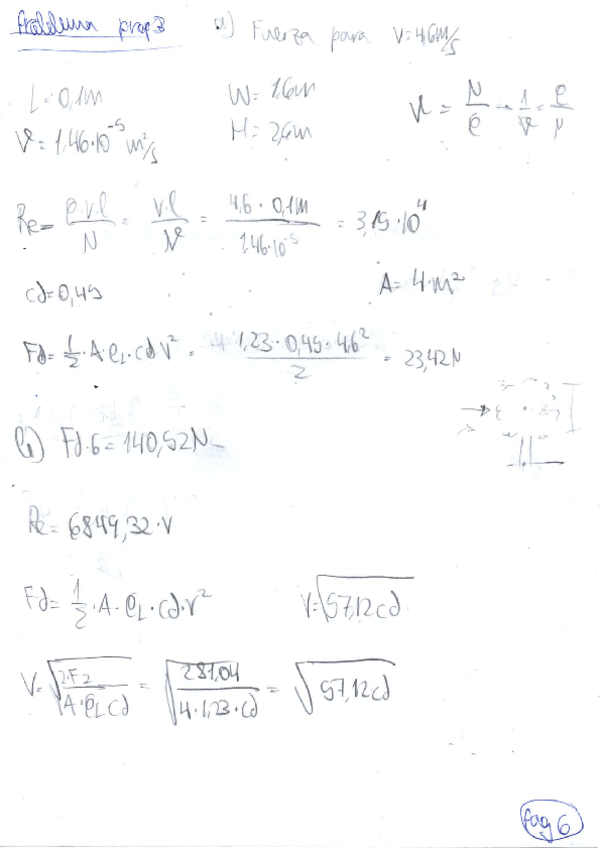 Problema prop 3 a) Fuerza para V=4,6m/s
L=0,1m W=1,6m
ϑ=1,46·10^-5 m²/s H=2,6m ϑ = N/ρ → 1/ϑ = ρ/N
Re = ρ·v·l/N = v·l/ϑ = 4,6 · 0,1m/1,46·10^-5 = 3,15·10^4
cd=0,45 A=4·m²
Fd= 1/2·A·ρL·cd V² = 4·1,23·0,45·4,6²/2 = 23,42N
b) Fd·6=140,52N
Re=6849,32·v
Fd= 1/2·A·ρL·cd·v² V=√57,12cd
V=√2·F2/A·ρL cd = √281,04/4·1,23·cd = √57,12cd
Pag 6